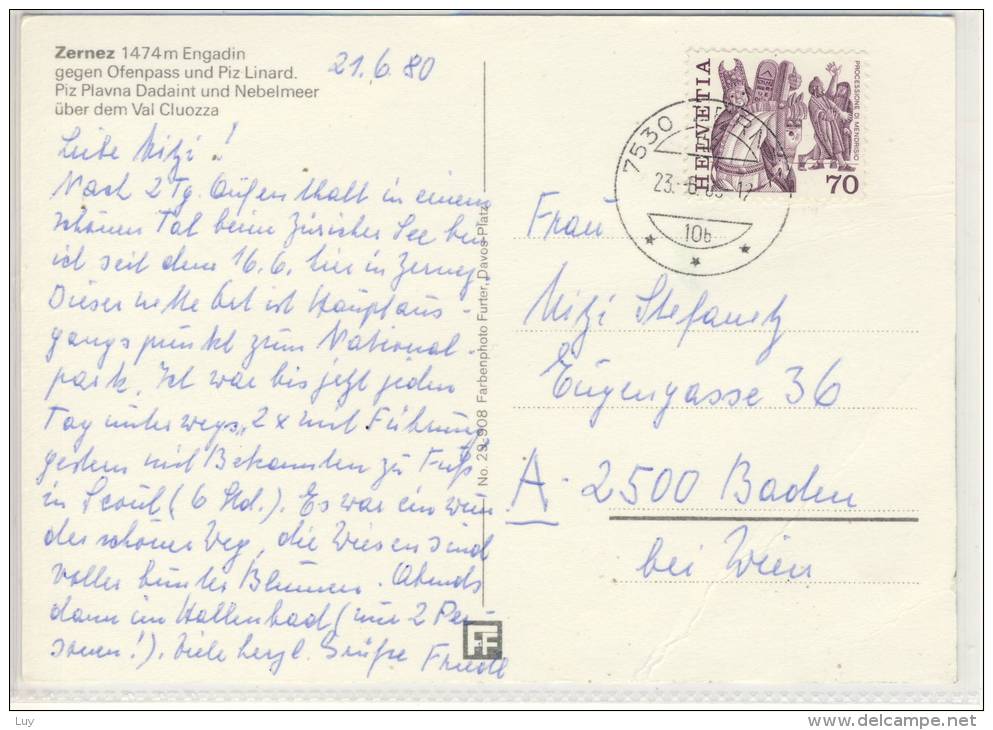 Zernez 1474 m Engadin
gegen Ofenpass und Piz Linard.
Piz Plavna Dadaint und Nebelmeer
über dem Val Cluozza
21.6.80
Liebe Mitzi!
Nach 2 Tg. Aufenthalt in einem
schönen Tal beim Züricher See bin
ich seit dem 16.6. hier in Zernez.
Dieser nette Ort ist Hauptaus-
gangspunkt zum National-
park. Ich war bis jetzt jeden
Tag unterwegs, 2 x mit Führung,
gestern mit Bekannten zu Fuß
in Scoul (6 Std.). Es war ein wun
derschöner Weg, die Wiesen sind
voller bunter Blumen. Abends
dann im Hallenbad (nur 2 Per-
sonen!). Viele herzl. Grüße Friedl
No. 29-908 Farbenphoto Furter, Davos-Platz
FF
HELVETIA
PROCESSIONE DI MENDRISIO
70
7530
23.
10b
Frau
Mitzi Stefanetz
Eugengasse 36
A-2500 Baden
bei Wien
Luy
www.delcampe.net